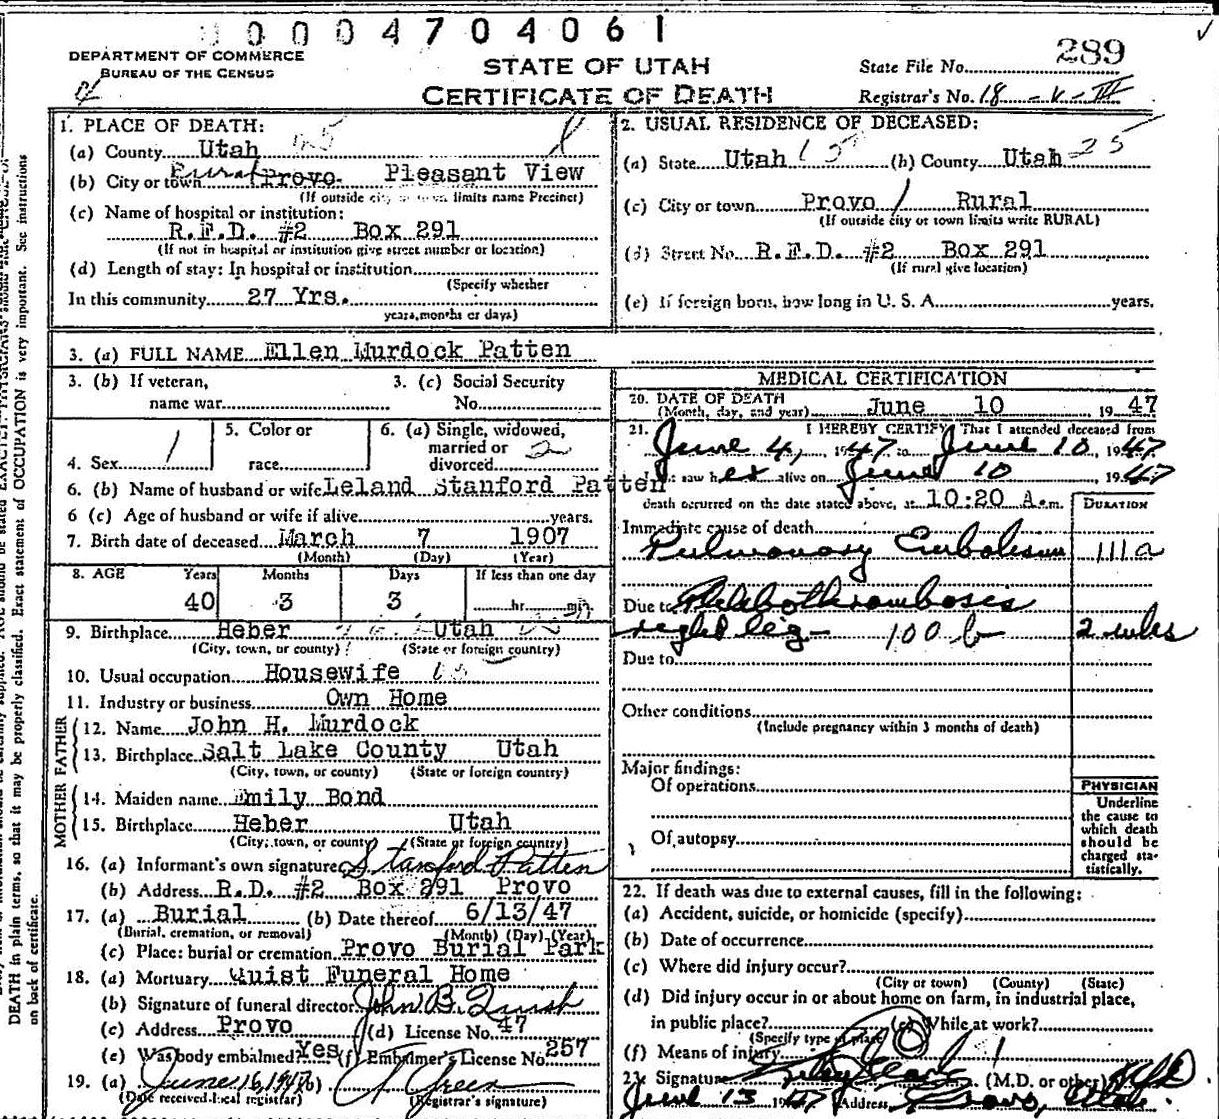 0004704061
DEPARTMENT OF COMMERCE
BUREAU OF THE CENSUS
STATE OF UTAH
CERTIFICATE OF DEATH
State File No. 289
Registrar's No. 18
1. PLACE OF DEATH:
(a) County Utah
(b) City or town Rural Provo Pleasant View
(If outside city or town limits name Precinct)
(c) Name of hospital or institution:
R.F.D. #2 Box 291
(If not in hospital or institution give street number or location)
(d) Length of stay: In hospital or institution
(Specify whether
In this community 27 Yrs.
years, months or days)
2. USUAL RESIDENCE OF DECEASED:
(a) State Utah (b) County Utah 25
(c) City or town Provo / Rural
(If outside city or town limits write RURAL)
(d) Street No R.F.D. #2 Box 291
(If rural give location)
(e) If foreign born, how long in U. S. A. years.
3. (a) FULL NAME Ellen Murdock Patten
3. (b) If veteran,
name war
3. (c) Social Security
No.
4. Sex 1
5. Color or
race
6. (a) Single, widowed,
married or
divorced 2
6. (b) Name of husband or wife Leland Stanford Patten
6 (c) Age of husband or wife if alive years.
7. Birth date of deceased March 7 1907
(Month) (Day) (Year)
8. AGE Years Months Days If less than one day
40 3 3 hr. min.
9. Birthplace Heber Utah
(City, town, or county) (State or foreign country)
10. Usual occupation Housewife
11. Industry or business Own Home
FATHER
12. Name John H. Murdock
13. Birthplace Salt Lake County Utah
(City, town, or county) (State or foreign country)
MOTHER
14. Maiden name Emily Bond
15. Birthplace Heber Utah
(City, town, or county) (State or foreign country)
16. (a) Informant's own signature Stanford Patten
(b) Address R.D. #2 Box 291 Provo
17. (a) Burial (b) Date thereof 6/13/47
(Burial, cremation, or removal) (Month) (Day) (Year)
(c) Place: burial or cremation Provo Burial Park
18. (a) Mortuary Quist Funeral Home
(b) Signature of funeral director John B. Quish
(c) Address Provo (d) License No. 47
(e) Was body embalmed? Yes (f) Embalmer's License No 257
19. (a) June 16, 1947 (b)
(Date received local registrar) (Registrar's signature)
MEDICAL CERTIFICATION
20. DATE OF DEATH
(Month, day, and year) June 10 19 47
21. I HEREBY CERTIFY That I attended deceased from
June 4, 1947 to June 10, 1947
saw her alive on June 10 1947
death occurred on the date stated above, at 10:20 A.m.
DURATION
Immediate cause of death
Pulmonary Embolism 111a
Due to Phlebothromboses
right leg - 100 b 2 wks
Due to
Other conditions
(Include pregnancy within 3 months of death)
Major findings:
Of operations
Of autopsy
PHYSICIAN
Underline
the cause to
which death
should be
charged sta-
tistically.
22. If death was due to external causes, fill in the following:
(a) Accident, suicide, or homicide (specify)
(b) Date of occurrence
(c) Where did injury occur?
(City or town) (County) (State)
(d) Did injury occur in or about home on farm, in industrial place,
in public place? (e) While at work?
(Specify type of place)
(f) Means of injury
23. Signature Riley Clark (M.D. or other) M.D.
June 13 1947 Address Provo, Utah.
DEATH in plain terms, so that it may be properly classified. Exact statement of OCCUPATION is very important. See instructions
on back of certificate.